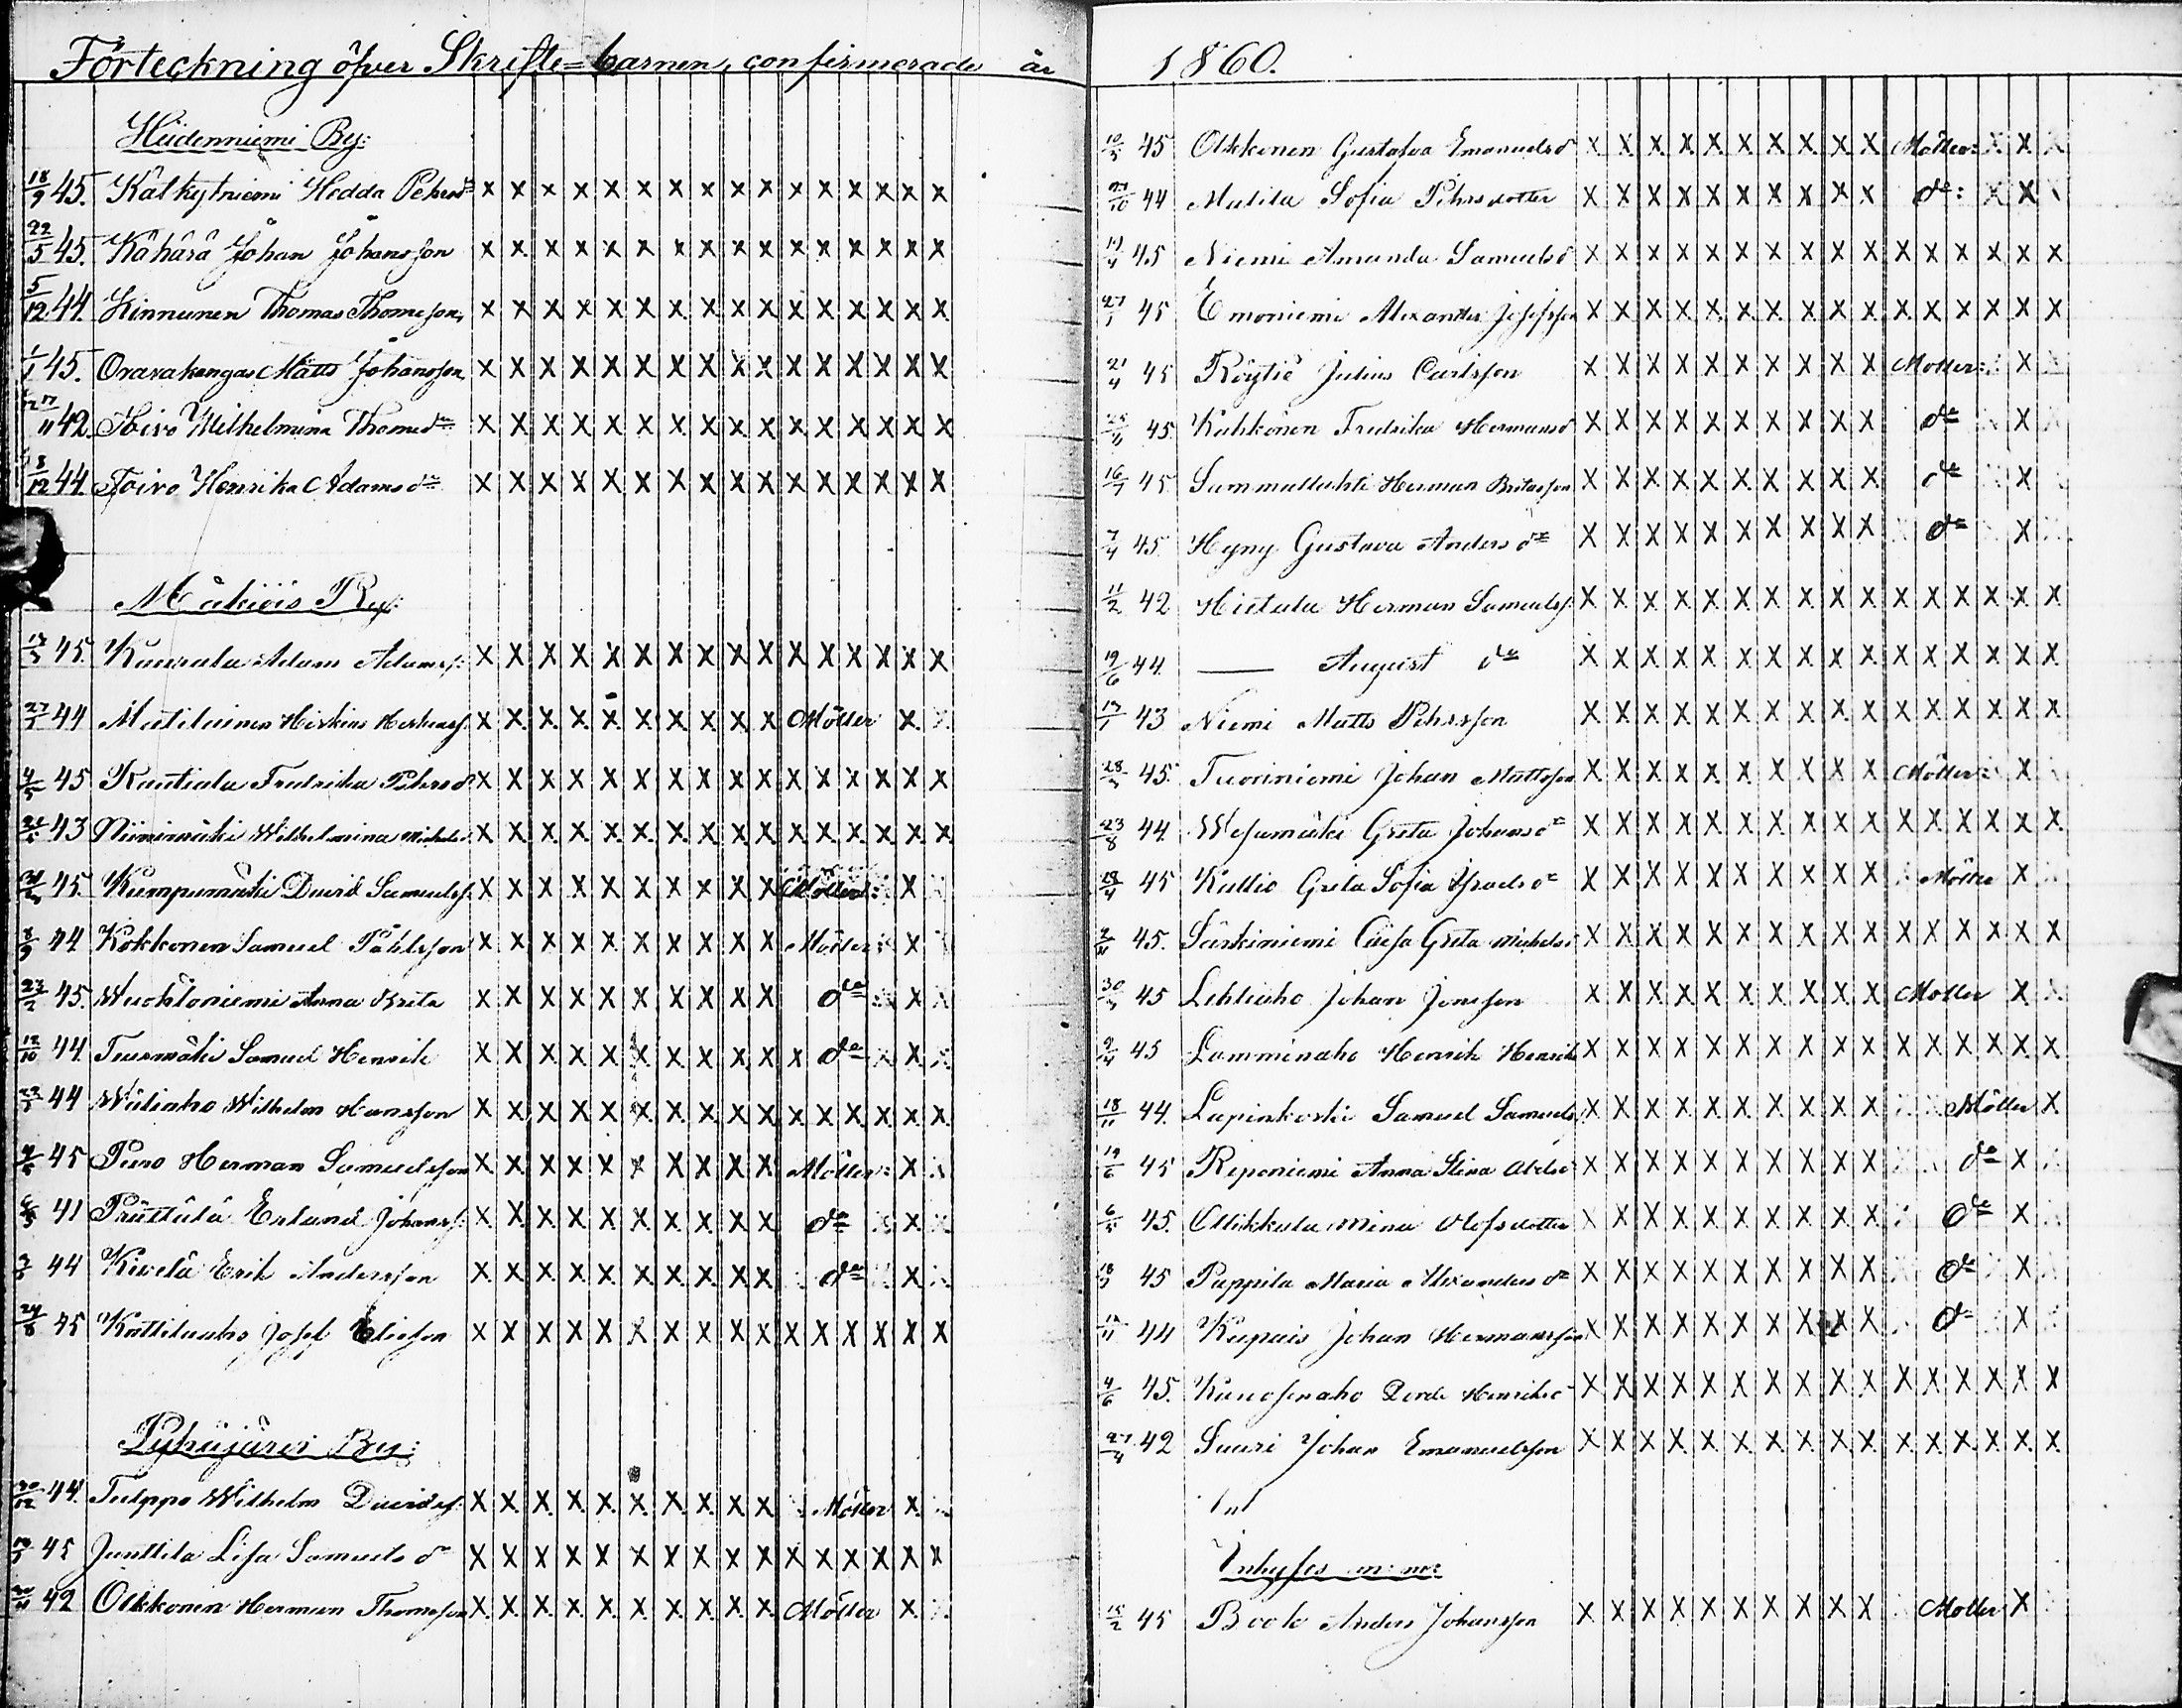 Förteckning öfver Skrifte=barnen, confirmerade år 1860.
Hiidenniemi By:
18/9 45. Kälkytniemi Hedda Pehrsdr x x x x x x x x x x x x x x x
22/5 45. Kähärä Johan Johansson x x x x x x x x x x x x x x x
5/12 44. Kinnunen Thomas Thomeson x x x x x x x x x x x x x x x
1/1 45. Oravakangas Matts Johansson x x x x x x x x x x x x x x x
17/11 42. Toivo Wilhelmina Thomedr x x x x x x x x x x x x x x x
8/12 44. Toivo Henrika Adamsdr x x x x x x x x x x x x x x x
Mäkiöis By:
45. Kaurala Adam Adamss: x x x x x x x x x x x x x x x
44 Matilainen Hiskias x x x x x x x x x x Möller x
4/5 45 Rantiala Fredrika Pehrsd x x x x x x x x x x x x x x x
43 Niinimäki Wilhelmina x x x x x x x x x x x x x x x
45. Kumpumäki David Samuelss: x x x x x x x x x x Möller: x
8/9 44 Kokkonen Samuel Påhlsson x x x x x x x x x x Möller: x
23/2 45. Wuohtoniemi Anna Brita x x x x x x x x x x do x
12/10 44. Tuusmäki Samuel Henrik x x x x x x x x x x x do x
44 Wilhelm Hansson x x x x x x x x x x x x x x x
45 Puro Herman Samuelsson x x x x x x x x x x Möller: x
41 Prättälä Erland Johanss: x x x x x x x x x x do x
44 Kivelä Erik Andersson x x x x x x x x x x do x
24/8 45 Kattilaaho Josef Eliesson x x x x x x x x x x x x x x x
Pyhäjärvi By:
30/12 44. Tulppo Wilhelm Davidss: x x x x x x x x x x Möller x
45 Junttila Lisa Samuelsdr x x x x x x x x x x x x x x x
42 Olkkonen Herman Thomesson x x x x x x x x x x Möller x
10/5 45 Olkkonen Gustafva Emanuelsd x x x x x x x x x x Möller: x
44 Matila Sofia Pehrsdotter x x x x x x x x x x do: x
45 Niemi Amanda Samuelsd x x x x x x x x x x x x x x x x
27/1 45 Emoniemi Alexander Josefsson x x x x x x x x x x x x x x x x
21/4 45 Röytiö Julius Carlsson x x x x x x x x x x Möller: x
45. Kähkönen Fredrika Hermansd x x x x x x x x x x do x
16/7 45 Sammallahti Herman Britasson x x x x x x x x x x do x
7/4 45. Hyny Gustava Andersdr x x x x x x x x x x do x
11/2 42 Hietala Herman Samuelss: x x x x x x x x x x x x x x x x
19/6 44. —— August do x x x x x x x x x x x x x x x x
17/1 43 Niemi Matts Pehrsson x x x x x x x x x x x x x x x x
45. Tuoriniemi Johan Mattsson x x x x x x x x x x Möller: x
23/8 44. Wesamäki Greta Johansdr x x x x x x x x x x x x x x x x
45 Kallio Greta Sofia Israelsdr x x x x x x x x x x Möller x
45. Särkiniemi Cajsa Greta Michelsd x x x x x x x x x x x x x x x x
45 Lehtiaho Johan Jonsson x x x x x x x x x x Möller x
45 Lamminaho Henrik Henrik x x x x x x x x x x x x x x x x
18/11 44. Lapinkoski Samuel Samuels x x x x x x x x x x Möller x
19/6 45 Reponiemi Anna Stina x x x x x x x x x x do x
45. Ollikkala Mina Olofsdotter x x x x x x x x x x do x
45 Pappila Maria Alexandersdr x x x x x x x x x x do x
44 Kupais Johan Hermansson x x x x x x x x x x do x
4/6 45. Henriksd x x x x x x x x x x x x x x x x
42 Suuri Johan Emanuelsson x x x x x x x x x x x x x x x x
Inhyses
15/2 45 Book Anders Johansson x x x x x x x x x x Möller x